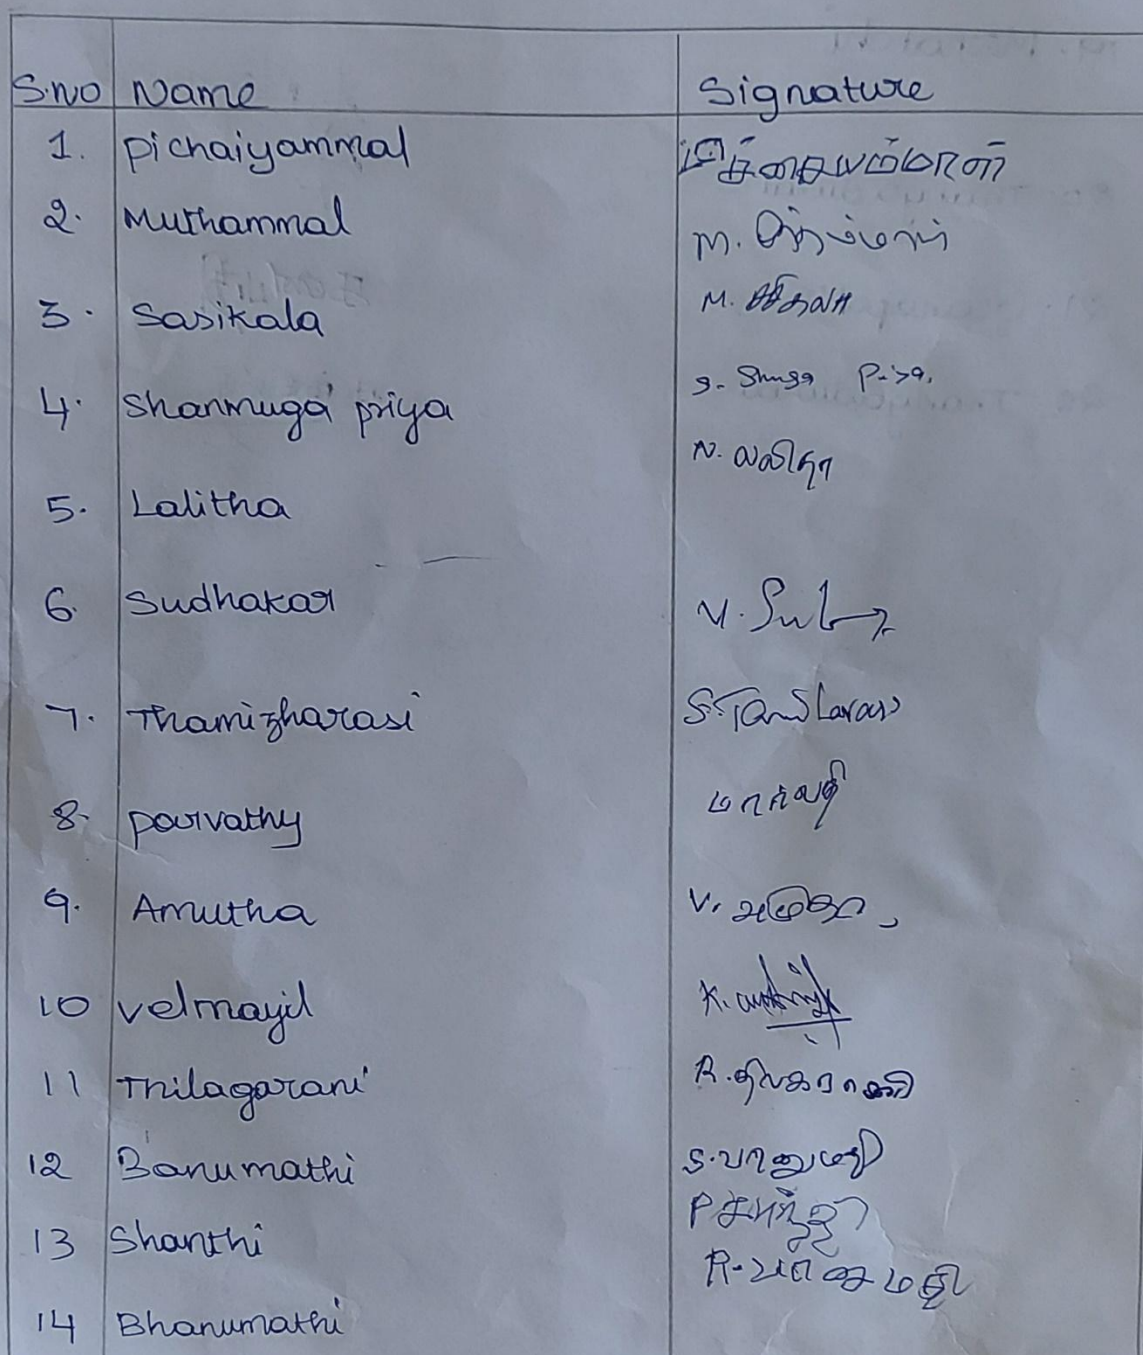 S.no Name Signature
1. Pichaiyammal பிச்சையம்மாள்
2. Muthammal M.
3. Sasikala M. சசிகலா
4. Shanmuga priya S.
5. Lalitha N. லலிதா
6. Sudhakar V.
7. Thamizharasi S. Tamilarasi
8. Parvathy பார்வதி
9. Amutha V. அமுதா
10 Velmayil K.
11 Thilagarani R. திலகராணி
12 Banumathi S. பானுமதி
13 Shanthi P சாந்தி
14 Bhanumathi R. பானுமதி